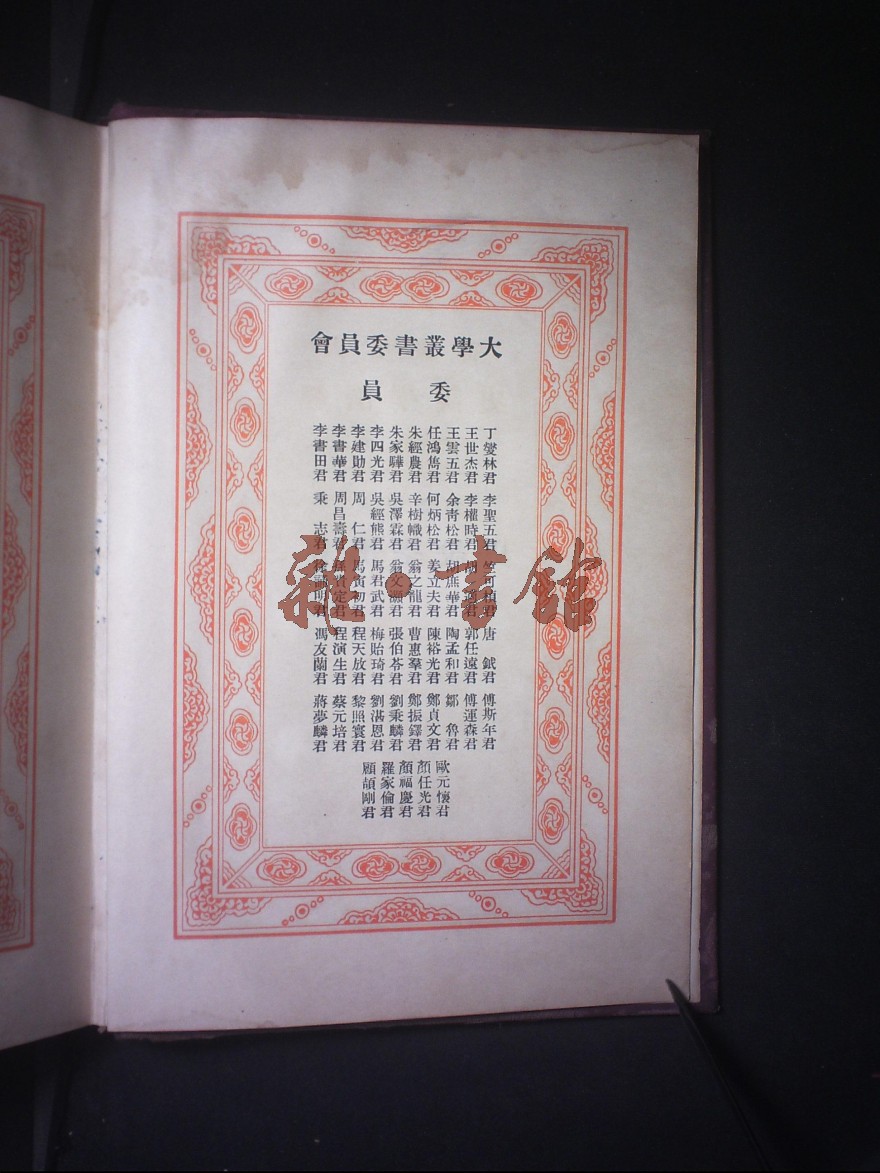 大學叢書委員會
委員
丁燮林君 王世杰君 王雲五君 任鴻雋君 朱經農君 朱家驊君 李四光君 李建勛君 李書華君 李書田君
李聖五君 李權時君 余青松君 何炳松君 辛樹幟君 吳澤霖君 吳經熊君 周仁君 周昌壽君 秉志君
竺可楨君 胡適君 胡庶華君 姜立夫君 翁之龍君 翁文灝君 馬君武君 馬寅初君 孫貴定君 徐誦明君
唐鉞君 郭任遠君 陶孟和君 陳裕光君 曹惠羣君 張伯苓君 梅貽琦君 程天放君 程演生君 馮友蘭君
傅斯年君 傅運森君 鄒魯君 鄭貞文君 鄭振鐸君 劉秉麟君 劉湛恩君 黎照寰君 蔡元培君 蔣夢麟君
歐元懷君 顏任光君 顏福慶君 羅家倫君 顧頡剛君
雜·書館